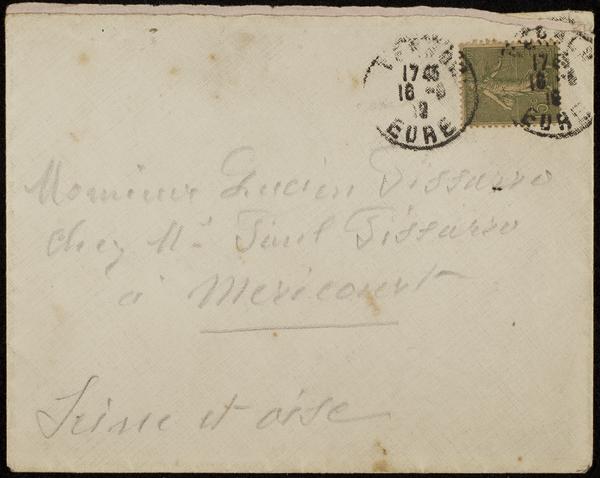 17 45
16 - 9
19
EURE
17 45
16
19
EURE
Monsieur Lucien Pissarro
chez Mr Paul Pissarro
à Mericourt
Seine et oise